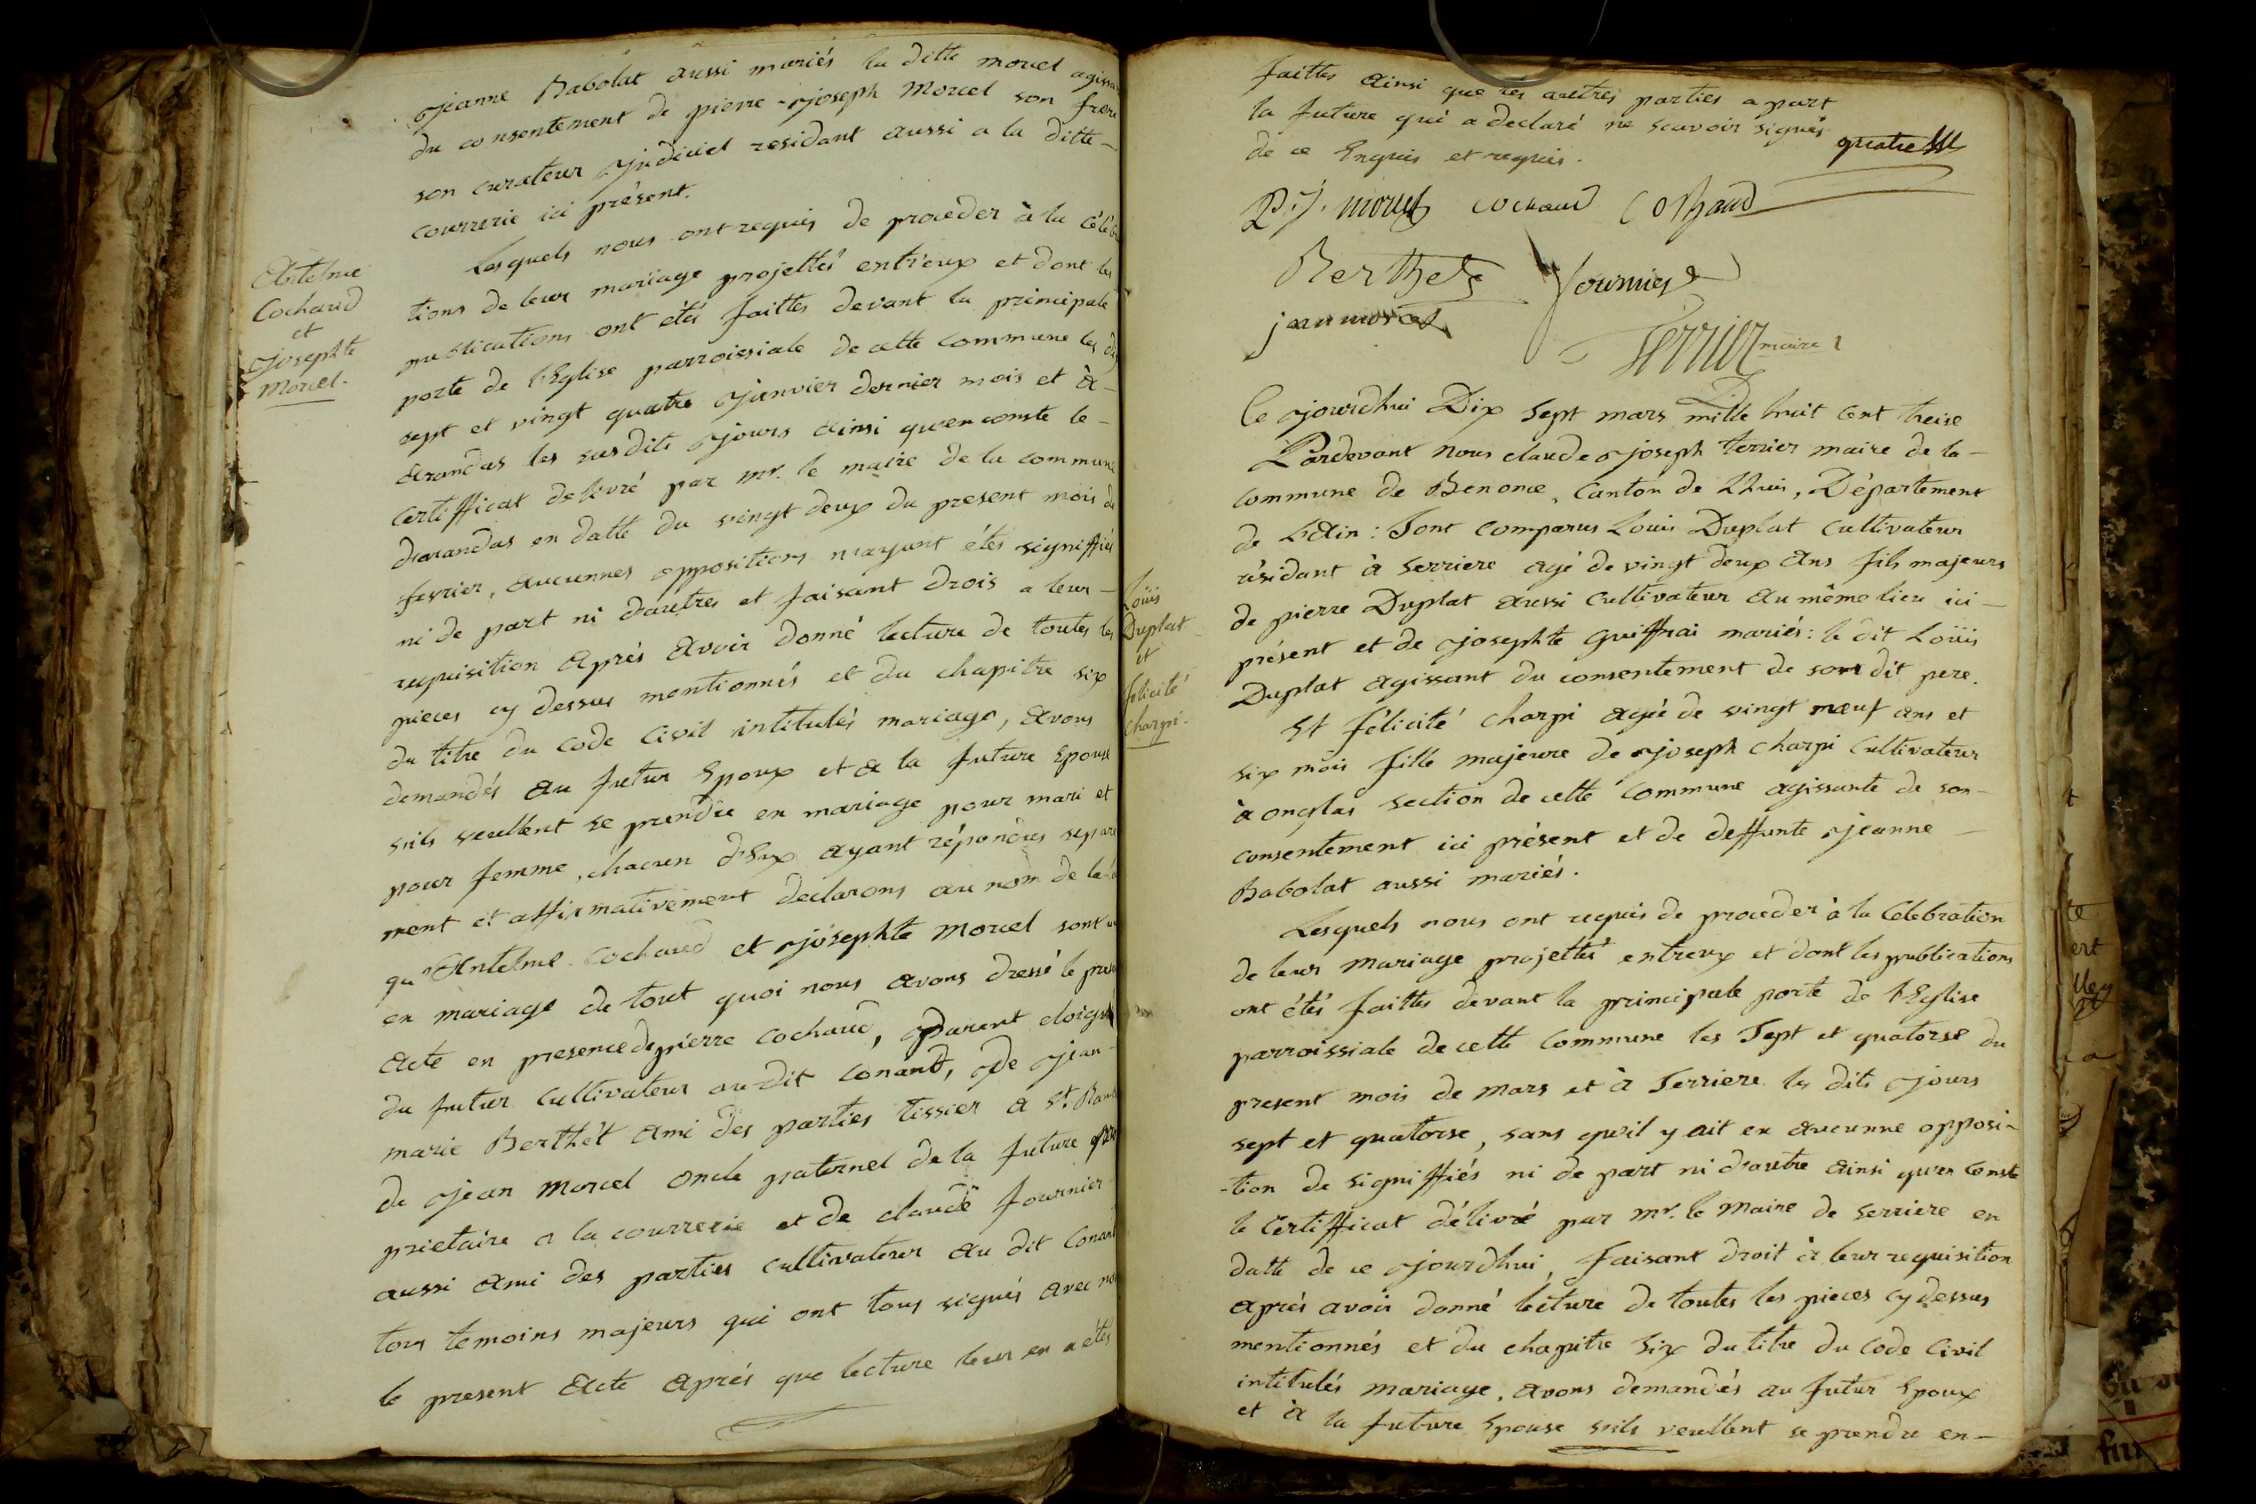 jeanne Babolat aussi mariés la ditte morcel agissant
du consentement de pierre-joseph Morcel son frere
son curateur judiciel residant aussi a la ditte -
courrerie ici présent.
Lesquels nous ont requis de proceder à la célébra
Antelme
Cochaud
et
Josephte
Morcel.
tions de leur mariage projetté entr'eux et dont les
publications ont étés faittes devant la principale
porte de l'Eglise parroissiale de cette commune les dix
sept et vingt quatre janvier dernier mois et à -
arandas les susdits jours ainsi qu'en conste le -
certifficat delivré par mr. le maire de la commune
d'arandas en datte du vingt deux du present mois de
fevrier, aucunnes oppositions n'ayant étés signiffiés
ni de part ni d'autres et faisant drois a leur -
requisition après avoir donné lecture de toutes les
pieces cy dessus mentionnés et du chapitre six
du titre du code civil intitulés mariage, avons
demandés au futur Epoux et a la future Epouse
s'ils veullent se prendre en mariage pour mari et
pour femme, chacun d'Eux ayant répondus separe
ment et affirmativement declarons au nom de la loi
qu'Antelme Cochaud et josephte Morcel sont unis
en mariage de tout quoi nous avons dressé le present
acte en presence de pierre Cochaud, parent eloigné
du futur cultivateur audit Conand, de jean-
marie Berthet ami des parties tissier a St. Ramb
de jean Morcel oncle paternel de la future pro
prietaire a la courrerie et de claude fournier
aussi ami des parties cultivateur au dit Conand
tous temoins majeurs qui ont tous signés avec nous
le present acte après que lecture leur en a étés
faittes ainsi que les autres parties a part
la future qui a declaré ne scavoir signer
de ce Enquis et requis.
quatre
P. J. morcel cochaud Cochaud
Berthet fournier
jean morcel
Terrier maire
Ce jourd'hui Dix sept mars mille huit cent treise
Pardevant nous claude joseph terrier maire de la -
commune de Benonce, Canton de Lhuis, Département
de L'Ain : Sont comparus Louis Duplat cultivateur
résidant à serriere agé de vingt deux ans fils majeurs
Loüis
Duplat
et
félicité
charpi.
de pierre Duplat aussi cultivateur au même lieu ici -
présent et de josephte guiffrai mariés : le dit Loüis
Duplat agissant du consentement de son dit pere.
Et félicité charpi agée de vingt neuf ans et
six mois fille majeure de joseph charpi cultivateur
à onglas section de cette commune agissante de son -
consentement ici présent et de deffunte jeanne -
Babolat aussi mariés.
Lesquels nous ont requis de proceder à la Célébration
de leur mariage projetté entreux et dont les publications
ont étés faittes devant la principale porte de l'Eglise
parroissiale de cette commune les Sept et quatorse du
present mois de mars et à Serriere les dits jours
sept et quatorse, sans qu'il y ait eu aucunne opposi-
-tion de signiffiés ni de part ni d'autre ainsi qu'en conste
le certifficat délivré par mr. le maire de serriere en
datte de ce jourd'hui, faisant droit à leur requisition
après avoir donné lecture de toutes les pieces cy dessus
mentionnés et du chapitre six du titre du code civil
intitulés mariage, avons demandés au futur Epoux
et à la future Epouse s'ils veullent se prendre en -